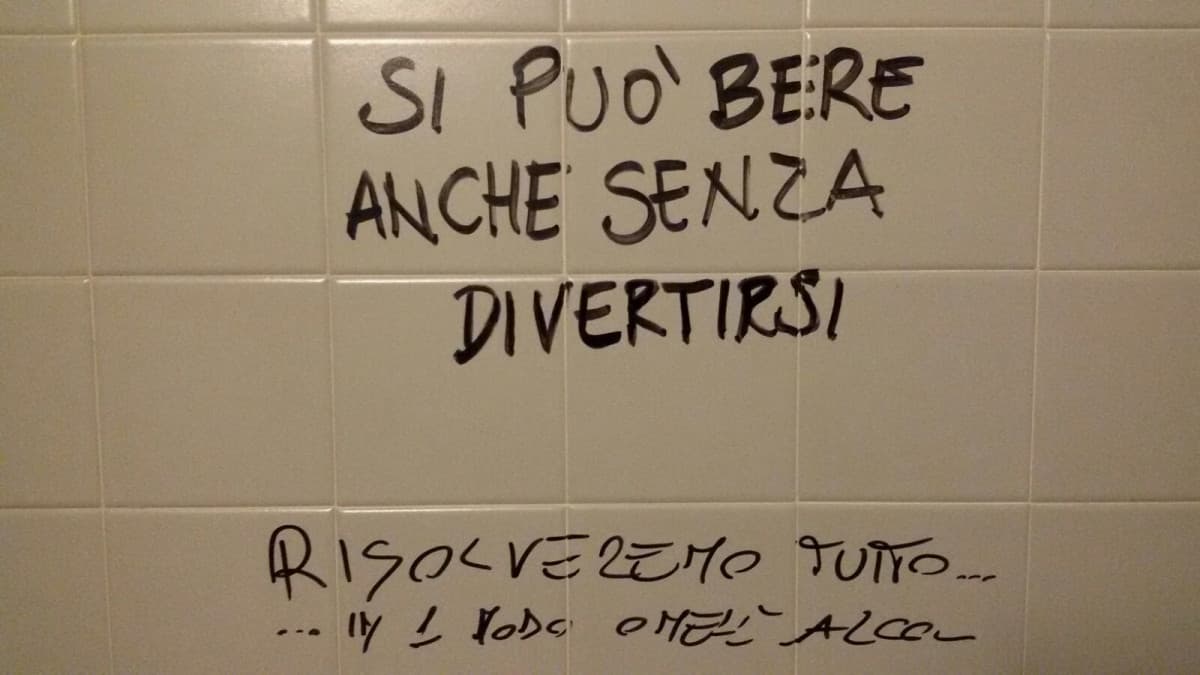 SI PUO' BERE
ANCHE SENZA
DIVERTIRSI
RISOLVEREMO TUTTO...
... IN 1 MODO ALCOL